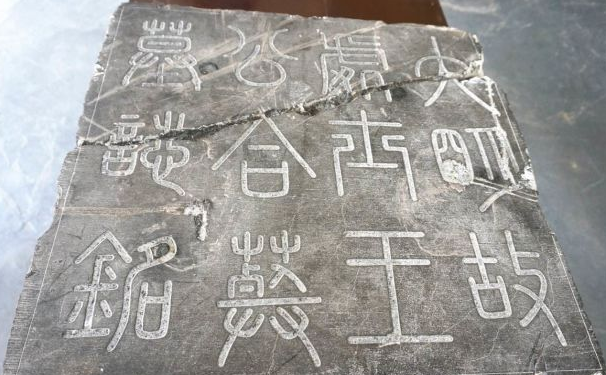 大明故
處士王
公合葬
墓誌銘